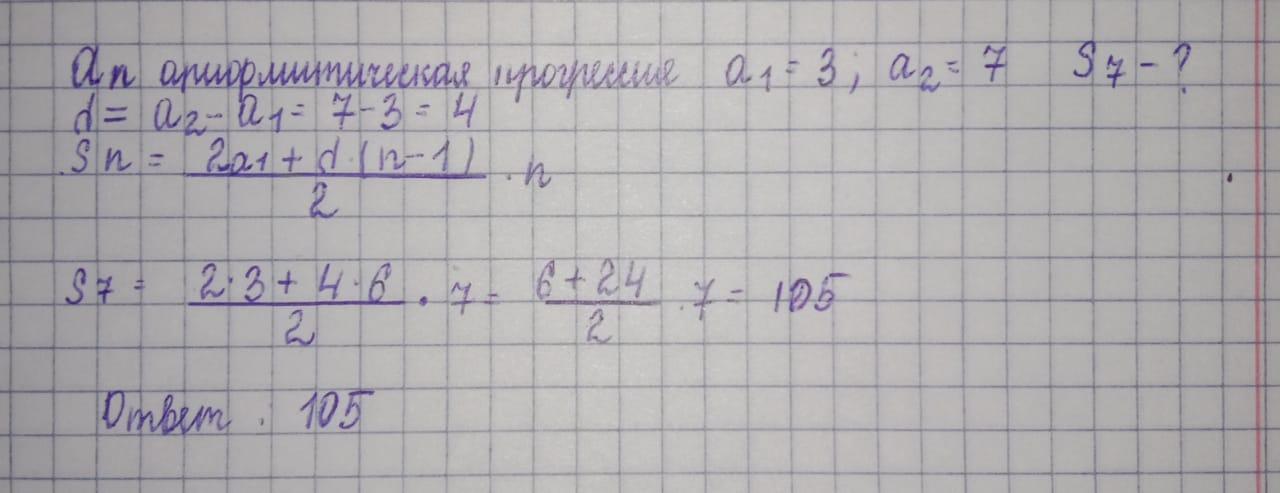 an ариормитическая прогрессия a1 = 3; a2 = 7 S7 - ?
d = a2 - a1 = 7 - 3 = 4
Sn = (2a1 + d·(n-1))/2 · n
S7 = (2·3 + 4·6)/2 · 7 = (6 + 24)/2 · 7 = 105
Ответ : 105